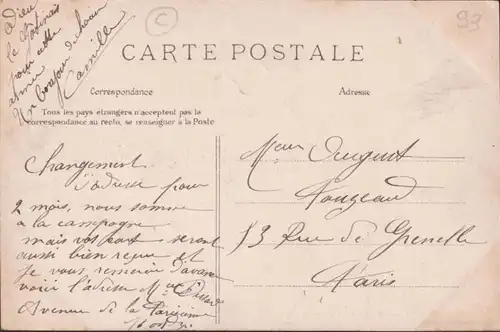 adieu
le
pour cette
année
Un bonjour de chacun
Camille
C
93
CARTE POSTALE
Correspondance
Adresse
Tous les pays étrangers n'acceptent pas la
correspondance au recto, se renseigner à la Poste
Changement
d'adresse pour
2 mois, nous somme
a la campagne
mais vos seront
aussi bien reçue et
je vous remercie d'avance
voici l'adresse
Avenue de la
Auguste
13 Rue de Grenelle
Paris